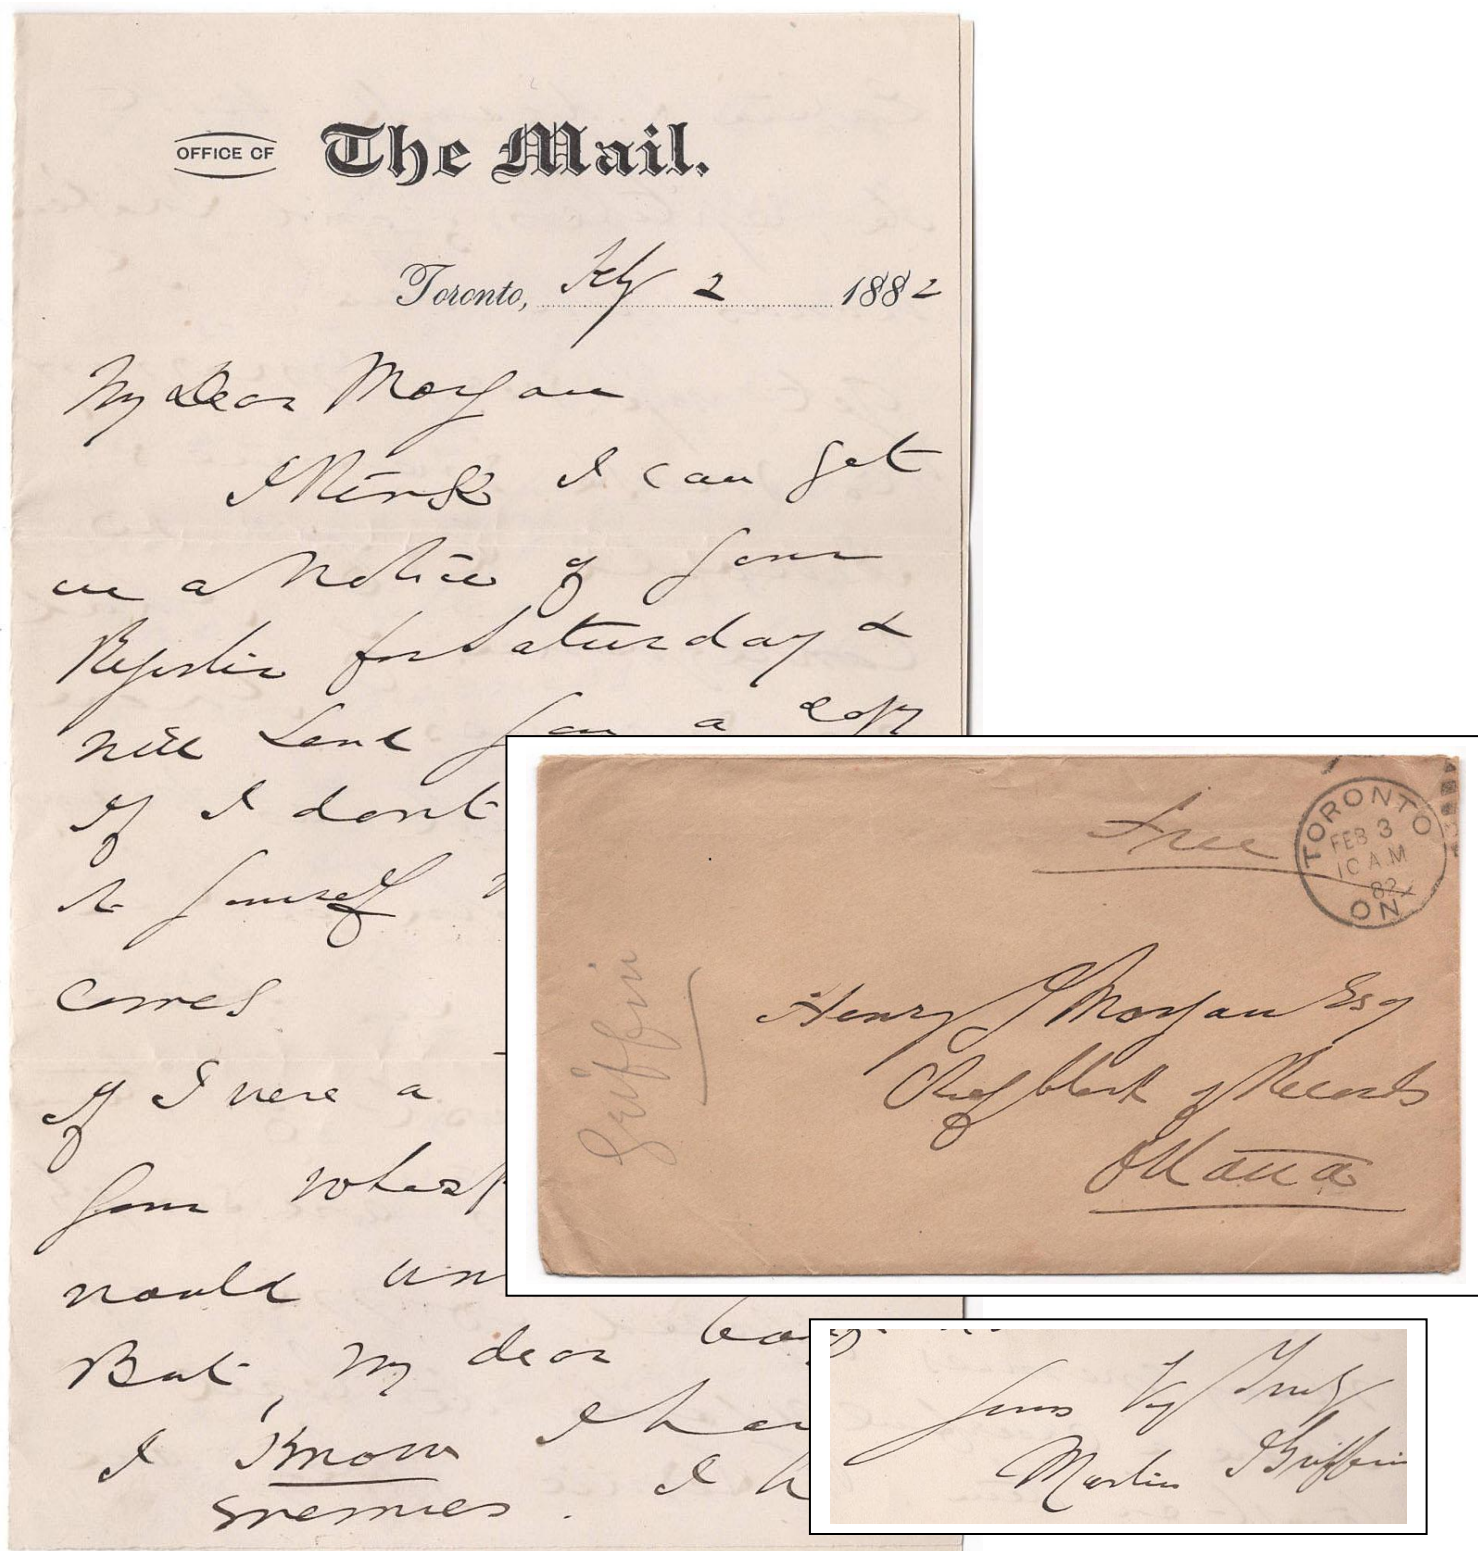 OFFICE OF The Mail.
Toronto, Feby 2 1882
My Dear Morgan
I think I can get
in a notice of your
Register for Saturday &
will send you a copy
If I don't
to yourself
comes
If I were a
your
would
But, my dear boy
I know I
enemies. I
Free
TORONTO
FEB 3
10 AM
82
ON
Henry J Morgan Esq
Chief Clerk of Records
Ottawa
Griffin
Yours Very Truly
Martin J Griffin